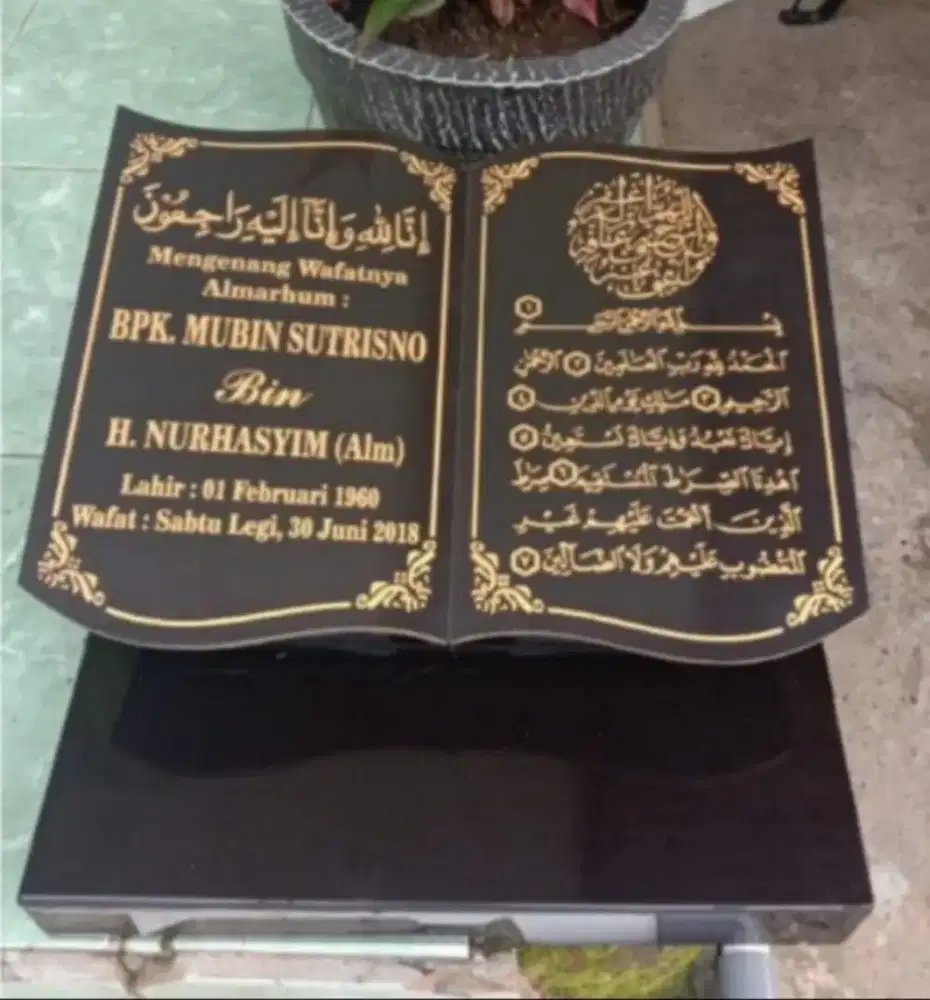 إِنَّا لِلّٰهِ وَإِنَّآ إِلَيْهِ رَاجِعُوْنَ
Mengenang Wafatnya
Almarhum :
BPK. MUBIN SUTRISNO
Bin
H. NURHASYIM (Alm)
Lahir : 01 Februari 1960
Wafat : Sabtu Legi, 30 Juni 2018
بِسْمِ اللَّهِ الرَّحْمَٰنِ الرَّحِيمِ ١
الْحَمْدُ لِلَّهِ رَبِّ الْعَالَمِينَ ٢ الرَّحْمَٰنِ
الرَّحِيمِ ٣ مَالِكِ يَوْمِ الدِّينِ ٤
إِيَّاكَ نَعْبُدُ وَإِيَّاكَ نَسْتَعِينُ ٥
اهْدِنَا الصِّرَاطَ الْمُسْتَقِيمَ ٦ صِرَاطَ
الَّذِينَ أَنْعَمْتَ عَلَيْهِمْ غَيْرِ
الْمَغْضُوبِ عَلَيْهِمْ وَلَا الضَّالِّينَ ٧